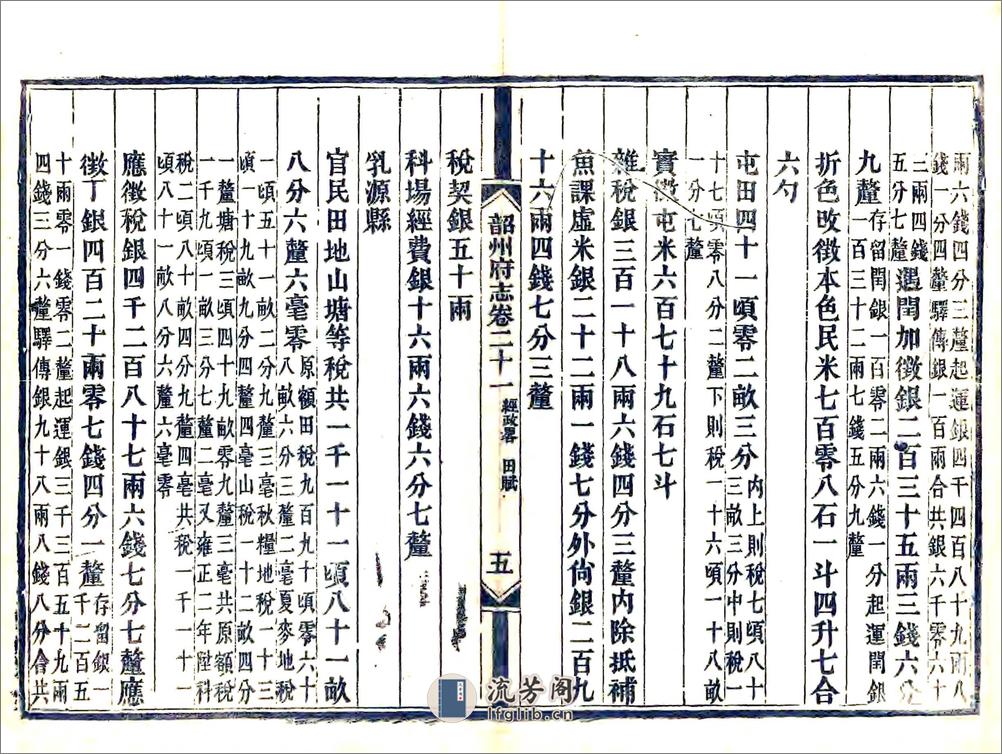 兩六錢四分三釐起運銀四千四百八十九兩八
錢一分四釐驛傳銀一百兩合共銀六千零六十
三兩四錢
五分七釐遇閏加徵銀二百三十五兩三錢六分
九釐存留閏銀一百零二兩六錢一分起運閏銀
一百三十二兩七錢五分九釐
折色改徵本色民米七百零八石一斗四升七合
六勺
屯田四十一頃零二畝三分內上則稅七頃八十
三畝三分中則稅一
十七頃零八分二釐下則稅一十六頃一十八畝
一分七釐
實徵屯米六百七十九石七斗
雜稅銀三百一十八兩六錢四分三釐內除抵補
魚課虛米銀二十二兩一錢七分外尙銀二百九
十六兩四錢七分三釐
韶州府志卷二十一 經政畧 田賦 五
稅契銀五十兩
科場經費銀十六兩六錢六分七釐
乳源縣
官民田地山塘等稅共一千一十一頃八十一畝
八分六釐六毫零原額田稅九百九十頃零六十
八畝六分三釐二毫夏麥地稅
一頃五十一畝二分九釐三毫秋糧地稅一十三
頃一十九畝九分四釐四毫山稅一十二畝四分
一釐塘稅三頃四十九畝零九釐三毫共原額稅
一千九頃一畝三分七釐二毫又雍正二年陞科
稅二頃八十畝四分九釐四毫共稅一千一十一
頃八十一畝八分六釐六毫零
應徵稅銀四千二百八十七兩六錢七分七釐應
徵丁銀四百二十兩零七錢四分一釐存留銀一
千二百五
十兩零一錢零二釐起運銀三千三百五十九兩
四錢三分六釐驛傳銀九十八兩八錢八分合共
流芳阁
lfglib.cn